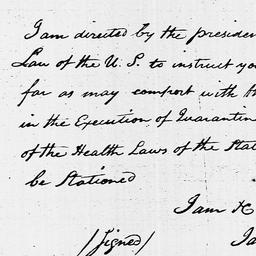 I am directed by the presiden
Law of the U. S. to instruct yo
far as may comport with th
in the Execution of Quarantin
of the Health Laws of the Stat
be Stationed
I am H
(Signed)
Ja